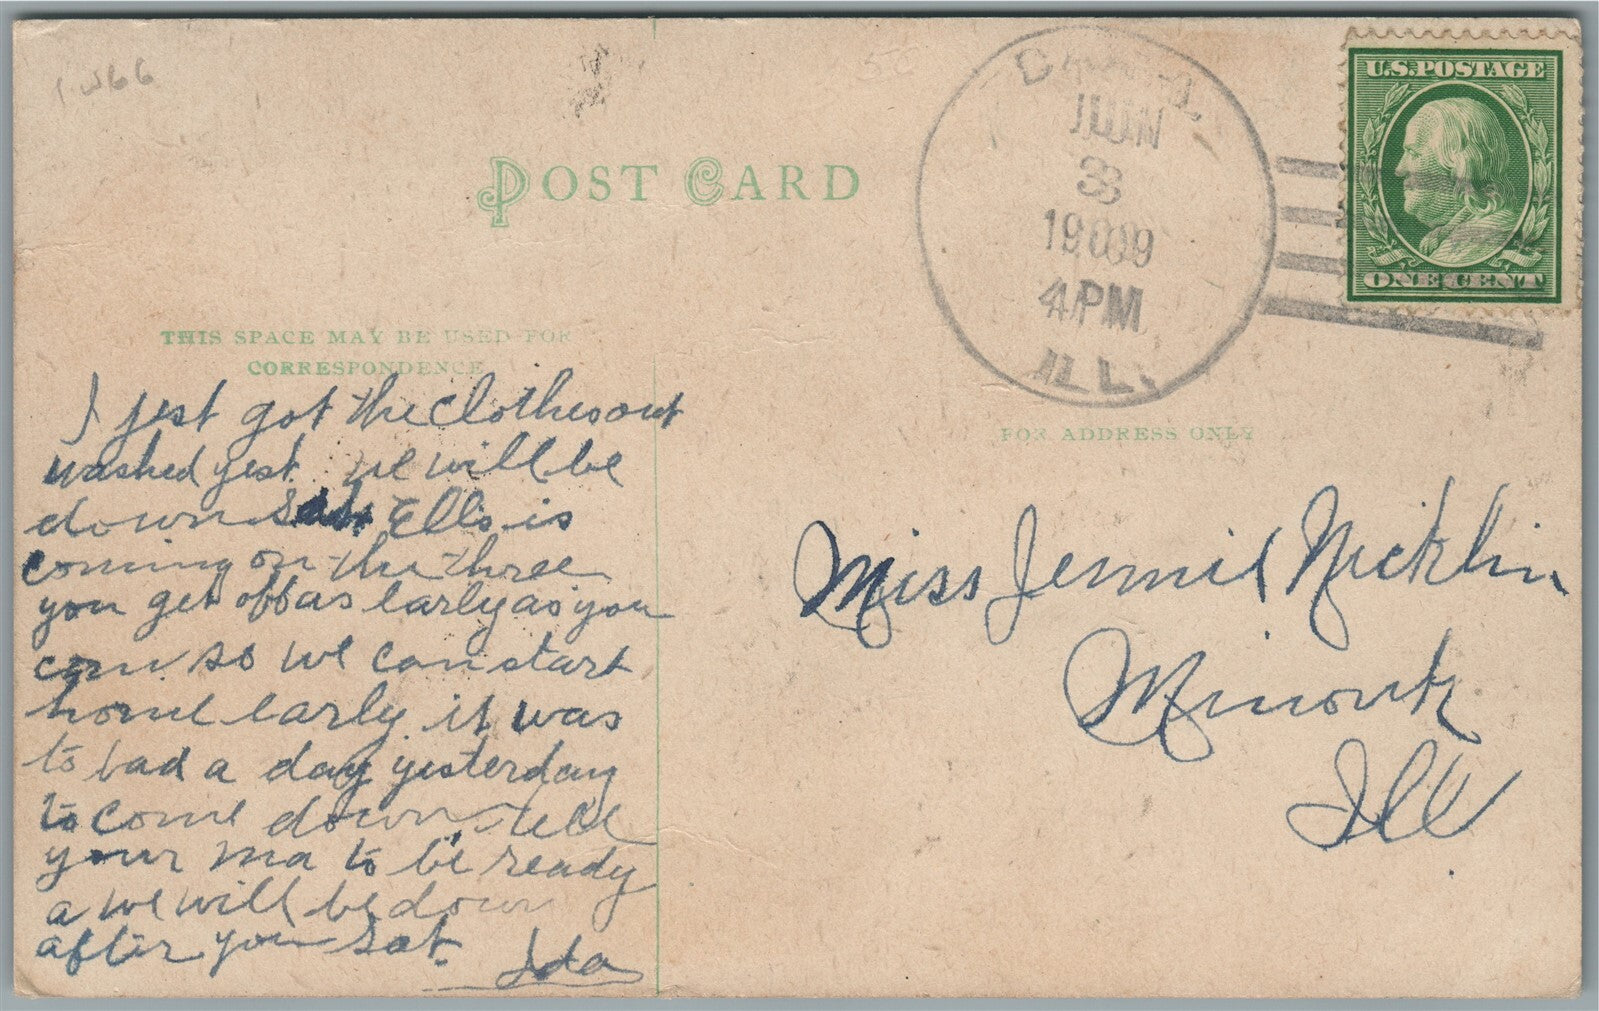 POST CARD
JUN
3
1909
4 PM
ILL.
U.S. POSTAGE
ONE CENT
THIS SPACE MAY BE USED FOR
CORRESPONDENCE
FOR ADDRESS ONLY
I jest got the clothes out
washed yest. we will be
down Sat. Ellis is
coming on the three
you get off as early as you
can. so we can start
home early. it was
to bad a day yesterday
to come down tell
your ma to be ready
a we will be down
after you Sat.
Ida
Miss Jennie Nicklin
Minonk
Ill